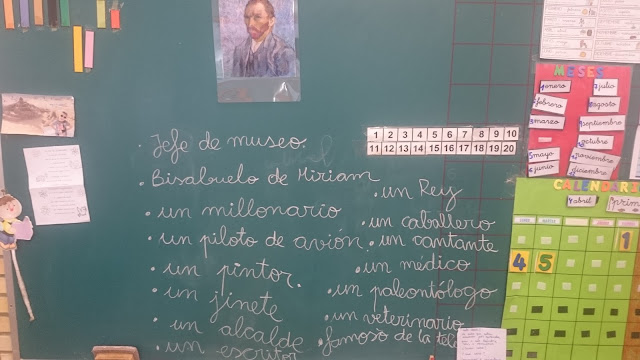 • Jefe de museo.
• Bisabuelo de Miriam
• un millonario
• un piloto de avión
• un pintor.
• un jinete
• un alcalde
• un escritor
• un Rey
• un caballero
• un cantante
• un médico
• un paleontólogo
• un veterinario
• famoso de la tele
1 2 3 4 5 6 7 8 9 10
11 12 13 14 15 16 17 18 19 20
MESES
enero
febrero
marzo
mayo
junio
julio
agosto
septiembre
octubre
noviembre
diciembre
CALENDARIO
abril
1
4 5